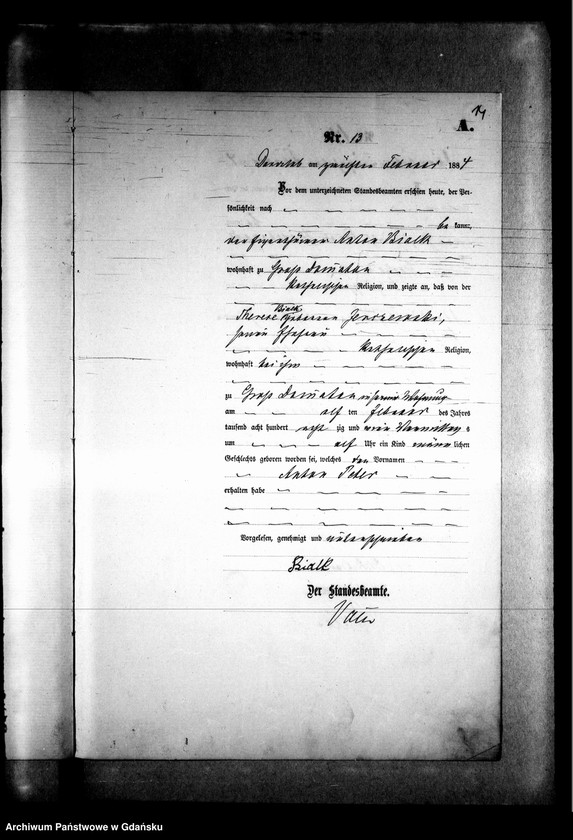 A.
Nr. 13
am zwölften Februar 1884
Vor dem unterzeichneten Standesbeamten erschien heute, der Per-
sönlichkeit nach
be kannt,
der Eigenthümer Anton Bialk
wohnhaft zu Groß
katholischer Religion, und zeigte an, daß von der
Bialk
Therese geborenen
seiner Ehefrau
katholischer Religion,
wohnhaft bei ihm
zu Groß in seiner Wohnung
am elf ten Februar des Jahres
tausend acht hundert acht zig und vier Vormittag s
um elf Uhr ein Kind männ lichen
Geschlechts geboren worden sei, welches den Vornamen
Anton Peter
erhalten habe
Vorgelesen, genehmigt und unterschrieben
Bialk
Der Standesbeamte.
Archiwum Państwowe w Gdańsku